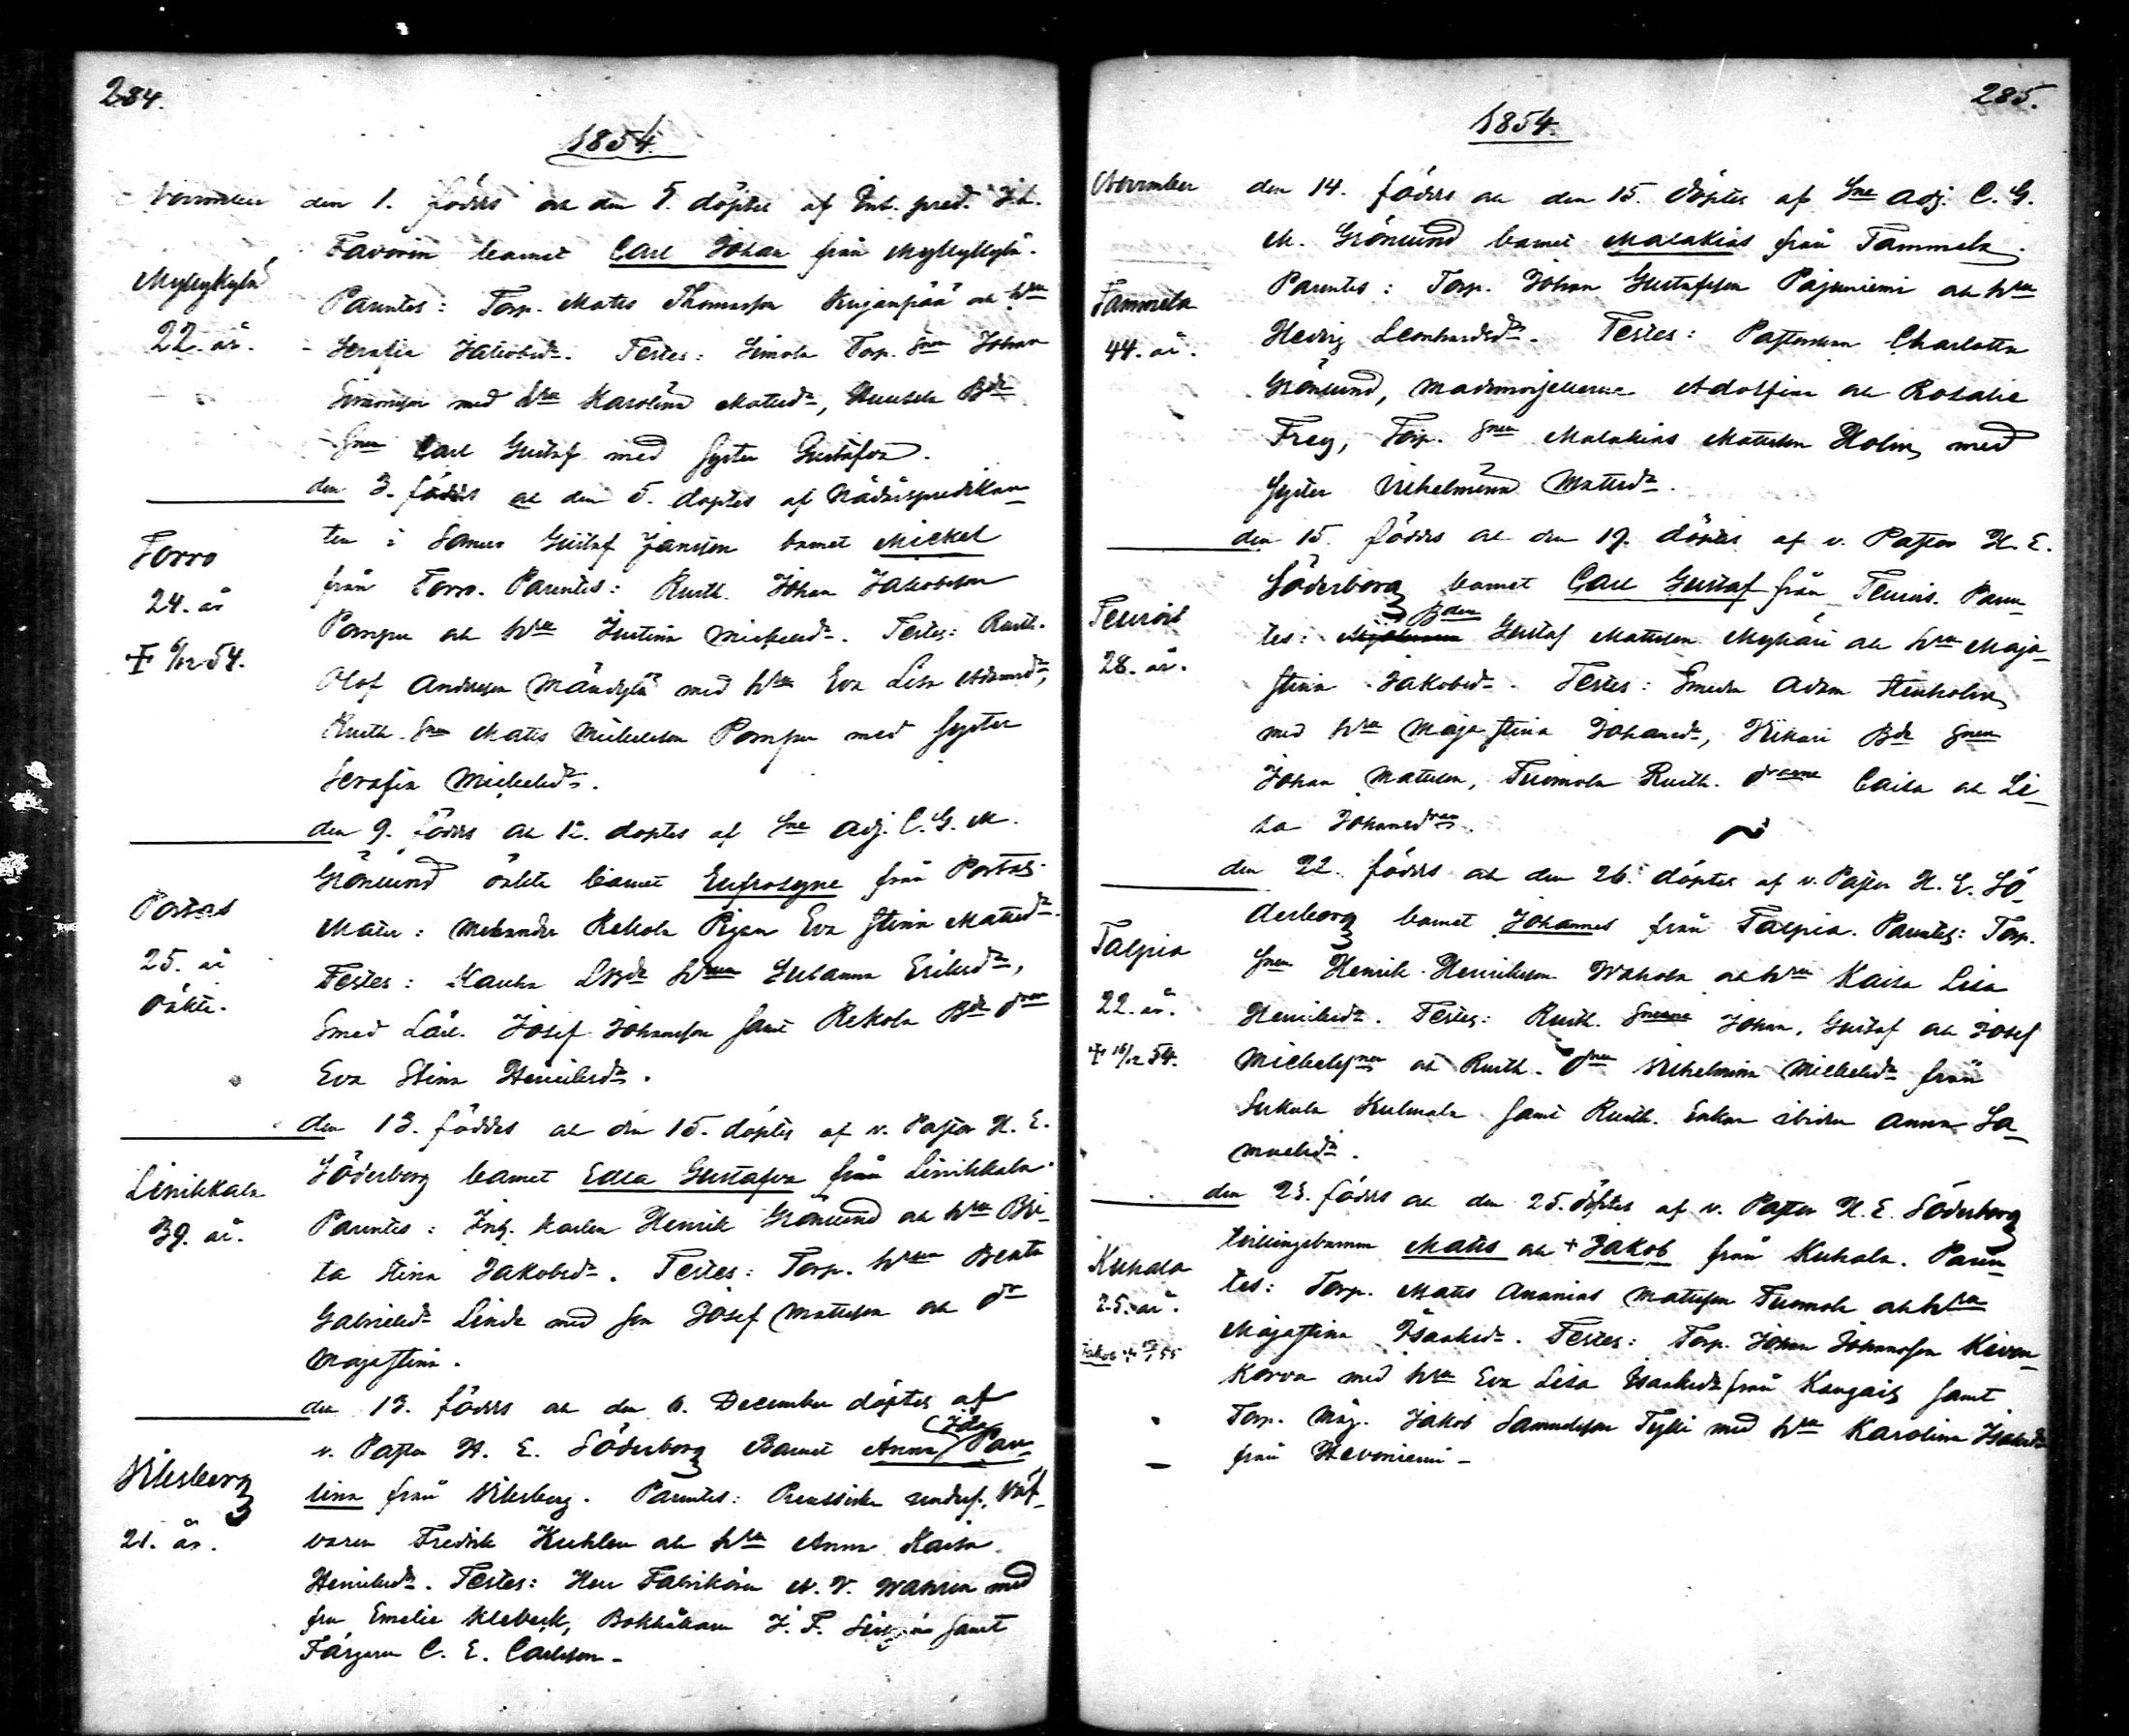 284.
1854.
November den 1. föddes och den 5. döptes af Int. pred. J. L.
Favorin barnet Carl Johan från Myllykylä.
Myllykylä
22. år.
Parentes: Torp. Matts Thomasson Kujanpää och hru
Serafia Jakobsdr. Testes: Simola Torp. Son Johan
Simonsson med hru Karolina Mattsdr, Bde
Son Carl Gustaf med syster Gustafva.
den 3. föddes och den 5. döptes af Nådårspredikan-
ten i Somero Gustaf Jansson barnet Mickel
Torro
24. år
från Torro. Parentes: Rusth. Johan Jakobsson
Pompu och hru Justina Mickelsdr. Testes: Rusth.
† 6/12 54.
Olof Andersson Mändylä med hru Eva Lisa Adamsdr,
Rusth. Son Matts Mickelsson Pompu med syster
Serafia Mickelsdr.
den 9. föddes och 12. döptes af Sne Adj. C. G. M.
Grönlund oäkta barnet Eufrosyne från Portas.
Portas
25. år
oäkta.
Mater: Rekola Pigan Eva Stina Mattsdr.
Testes: Kauha hrun Susanna Eriksdr,
Smed Lärl. Josef Johansson samt Rekola Bde dr
Eva Stina Henriksdr.
den 13. föddes och den 15. döptes af v. Pastor H. E.
Söderborg barnet Edla Gustafva från Linikkala.
Linikkala
39. år.
Parentes: Inh. karlen Henrik Grönlund och hru Bri-
ta Stina Jakobsdr. Testes: Torp. hrun Beata
Gabrielsdr Linda med son Josef Mattsson och dr
Majastina.
den 13. föddes och den 6. December döptes af
v. Pastor H. E. Söderborg Barnet Anna (Ida) Pau-
lina från Viksberg. Parentes: Preussiska unders. Väf-
Viksberg
21. år.
varen Fredrik Kuhlen och hru Anna Kaisa
Henriksdr. Testes: Herr Fabrikören A. V. Wahren med
fru Emelie Klebeck, Bokhållaren J. F. samt
Färgaren C. E. Carlsson.
285.
1854.
November den 14. föddes och den 15. döptes af Sne Adj. C. G.
M. Grönlund barnet Malakias från Tammela.
Tammela
44. år.
Parentes: Torp. Johan Gustafsson Pajuniemi och hru
Hedvig Leonhardsdr. Testes: Pastorskan Charlotta
Grönlund, Mademoisellerna Adolfina och Rosalie
Frey, Torp. Son Malakias Mattsson Holm med
syster Vilhelmina Mattsdr.
den 15. föddes och den 19. döptes af v. Pastor H. E.
Söderborg barnet Carl Gustaf från Teuro. Paren-
Teuro
28. år.
tes: Bden Gustaf Mattsson Myhäri och hru Maja
Stina Jakobsdr. Testes: Smeden Adam Stenholm
med hru Maja Stina Johansdr, Bde Son
Johan Mattsson, Tuomola Rusth. drarne Caisa och Li-
sa Johansdrar.
den 22. föddes och den 26. döptes af v. Pastor H. E. Sö-
derborg barnet Johannes från Talpia. Parentes: Torp.
Talpia
22. år.
† 16/12 54.
Son Henrik Henriksson Wahola och hru Kaisa Lisa
Henriksdr. Testes: Rusth. Sönerne Johan, Gustaf och Josef
Mickelssöner och Rusth. drn Vilhelmina Mickelsdr från
Sukula Kulmala samt Rusth. Enkan ibidem Anna Sa-
muelsdr.
den 23. föddes och den 25. döptes af v. Pastor H. E. Söderborg
tvillingebarnen Matts och + Jakob från Kuhala. Paren-
Kuhala
25. år.
tes: Torp. Matts Ananias Mattsson Tuomola och hru
Majastina Isaksdr. Testes: Torp. Johan Johansson Kiven-
korva med hru Eva Lisa Isaksdr från Kangais samt
Torp. Måg. Jakob Samuelsson Tylli med hru Karolina Isaksdr
från Hevoniemi.